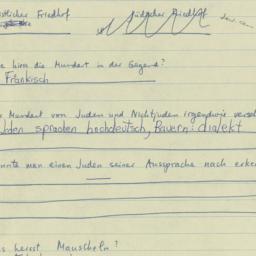 istlicher Friedhof jüdischer Friedhof
e hiess die Mundart in der Gegend?
Fränkisch
Mundart von Juden und Nichtjuden irgendwie versch
Juden sprachen hochdeutsch, Bauern: dialekt
nnte man einen Juden seiner Aussprache nach erken
s heisst Mauscheln?